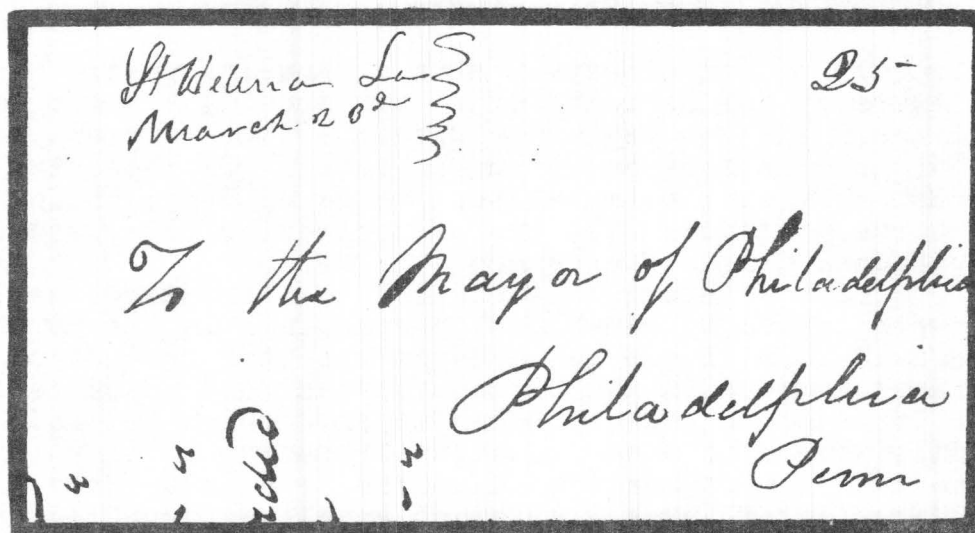 St Helena La
March 23d
25
To the Mayor of Philadelphia
Philadelphia
Penn